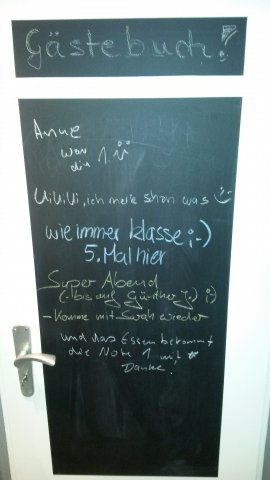 Gästebuch!
Anne
war
die 1. ü
UiUiUi, ich merke schon was :-)
wie immer klasse ;-)
5. Mal hier
Super Abend
(-1 bis auf Günther ;-) ;-)
- Komme mit Sarah wieder
und das Essen bekommt
die Note 1 mit *
Danke!